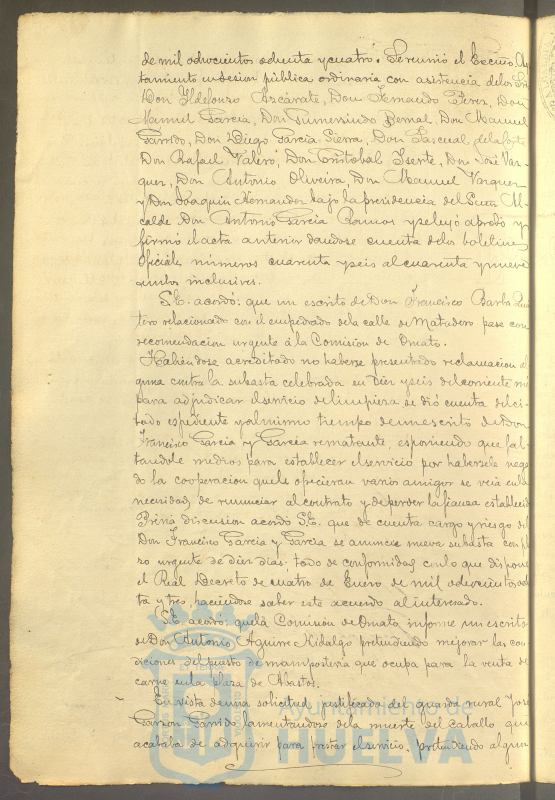 de mil ochocientos ochenta y cuatro. Se reunió el Excmo. Ayun
tamiento en sesion pública ordinaria con asistencia de los Sres
Don Ildefonso Azcárate, Don Fernando Perez, Don
Manuel Garcia, Don Gumersindo Bernal, Don Manuel
Garrido, Don Diego Garcia Sierra, Don Pascual de la Corte
Don Rafael Valero, Don Cristobal Iserte, Don José Vaz
quez, Don Antonio Oliveira, Don Manuel Vazquez
y Don Joaquin Hernandez bajo la presidencia del Señor Al
calde Don Antonio Garcia Ramos y se leyó aprobó y
firmó el acta anterior dandose cuenta de los boletines
oficiales números cuarenta y seis al cuarenta y nueve
ambos inclusives.
S.E. acordó: que un escrito de Don Francisco Barba Quin
tero relacionado con el empedrado de la calle de Matadero pase con
recomendacion urgente á la Comision de Ornato.
Habiéndose acreditado no haberse presentado reclamacion al
guna contra la subasta celebrada en diez y seis del corriente mes
para adjudicar el servicio de limpieza se dió cuenta del ci
tado espediente y al mismo tiempo de un escrito de Don
Francisco Garcia y Garcia rematante, esponiendo que fal
tandole medios para establecer el servicio por habersele nega
do la cooperacion que le ofrecieran varios amigos se veia en la
necesidad de renunciar al contrato y de perder la fianza establecida
Prévia discusion acordó S.E. que de cuenta cargo y riesgo del
Don Francisco Garcia y Garcia se anuncie nueva subasta con pla
zo urgente de diez dias, todo de conformidad con lo que dispone
el Real Decreto de cuatro de Enero de mil ochocientos ochen
ta y tres, haciéndose saber este acuerdo al interesado.
S.E. acordó: que la Comision de Ornato, informe un escrito
de Don Antonio Aguirre Hidalgo pretendiendo mejorar las con
diciones del puesto de mamposteria que ocupa para la venta de
carne en la plaza de Abastos.
En vista de una solicitud justificada del guarda rural José
Garzon Garrido lamentandose de la muerte del caballo que
acababa de adquirir para prestar el servicio, pretendiendo algun
Ayuntamiento de
HUELVA